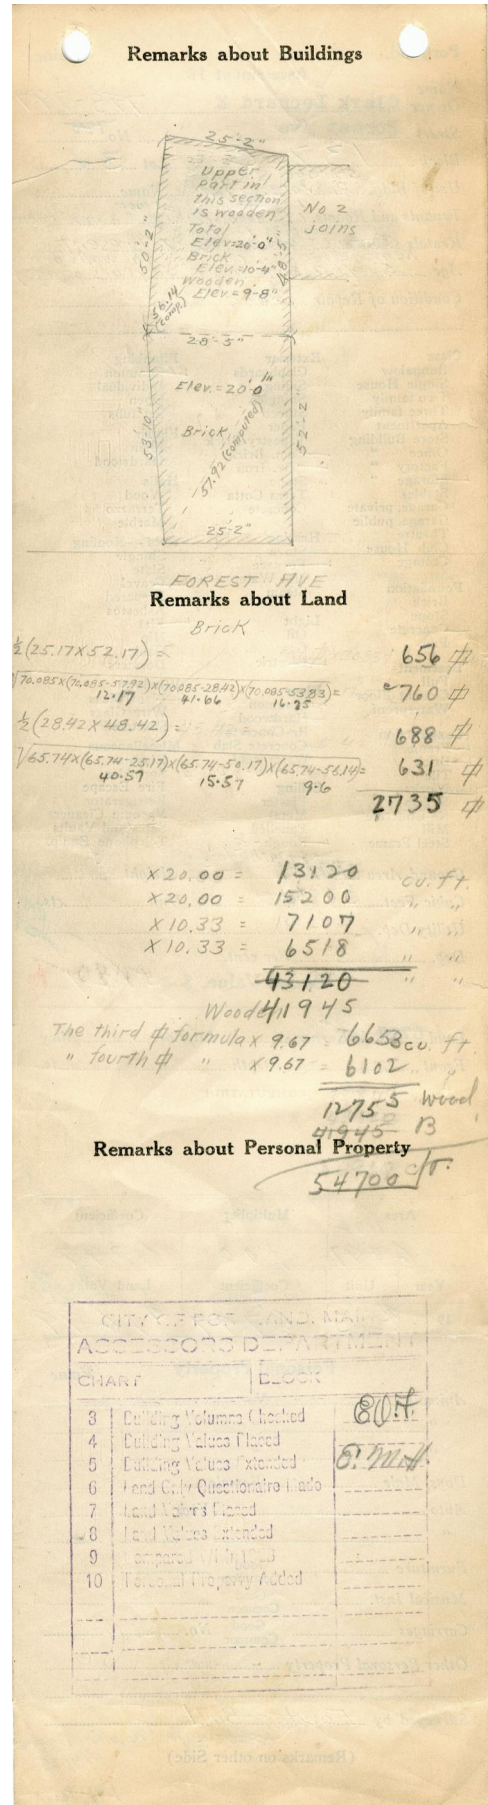 Remarks about Buildings
25'-2"
Upper
part in
this section
is wooden
Total
Elev=20'-0"
Brick
Elev.=10'-4"
Wooden
Elev=9'-8"
50'-2"
48'-5"
No 2
joins
56.14
(comp.)
28'-5"
Elev.=20'-0"
Brick
57.92 (computed)
53'-10
52'-2"
25'-2"
FOREST AVE
Remarks about Land
Brick
½(25.17X52.17) = 656 ⏀
√70.085x(70.085-57.92)x(70.085-28.42)x(70.085-53.83)= 760 ⏀
12.17 41.66 16.25
½(28.42X48.42)= 688 ⏀
√65.74x(65.74-25.17)x(65.74-50.17)x(65.74-56.14)= 631 ⏀
40.57 15.57 9.6
2735 ⏀
X20.00 = 13120 cu. ft.
X20.00 = 15200 " "
X10.33 = 7107 " "
X10.33 = 6518 " "
43120 " "
Wooden 41945
The third ⏀ formula x 9.67 = 6653 cu. ft
" fourth ⏀ " X9.67 = 6102 "
12755 wood
41945 B
Remarks about Personal Property
54700 c/f.
CITY OF PORTLAND, MAINE
ASSESSORS DEPARTMENT
CHART BLOCK
3 Building Volumns Checked
4 Building Values Placed
5 Building Values Extended
6 Land Only Questionaire Made
7 Land Values Placed
8 Land Values Extended
9
10 Personal Property Added